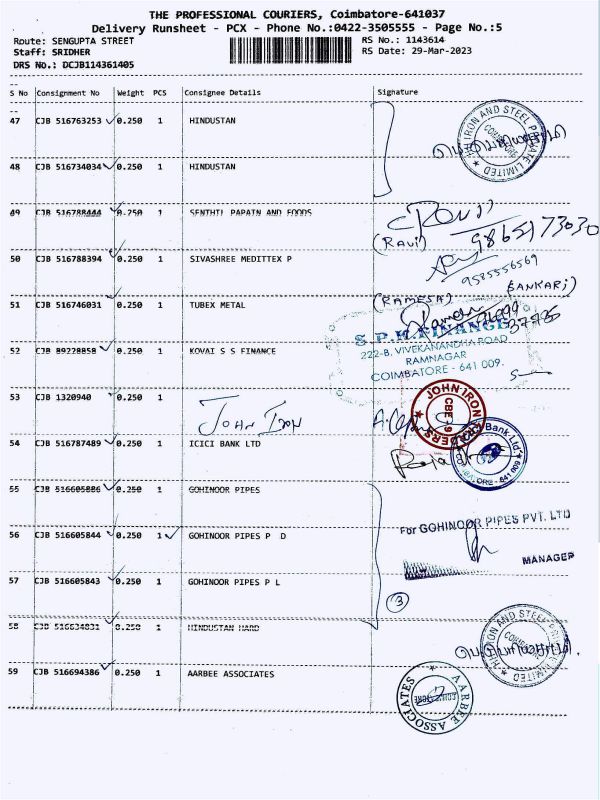 THE PROFESSIONAL COURIERS, Coimbatore-641037
Delivery Runsheet - PCX - Phone No.:0422-3505555 - Page No.:5
Route: SENGUPTA STREET RS No.: 1143614
Staff: SRIDHER RS Date: 29-Mar-2023
DRS No.: DCJB114361405
S No Consignment No Weight PCS Consignee Details Signature
47 CJB 516763253 0.250 1 HINDUSTAN
IRON AND STEEL PRIVATE LIMITED
48 CJB 516734034 0.250 1 HINDUSTAN
49 CJB 516788444 0.250 1 SENTHIL PAPAIN AND FOODS
(Ravi) 9865173030
50 CJB 516788394 0.250 1 SIVASHREE MEDITTEX P
9585556569
SANKARI)
51 CJB 516746031 0.250 1 TUBEX METAL
(RAMESH)
S.P.K. FINANCE
222-B, VIVEKANANDHA ROAD
RAMNAGAR
COIMBATORE - 641 009.
52 CJB 89228858 0.250 1 KOVAI S S FINANCE
53 CJB 1320940 0.250 1
JOHN IRON
JOHN IRON TRADERS CBE-9
54 CJB 516787489 0.250 1 ICICI BANK LTD
Bank Ltd. 641 009
55 CJB 516605886 0.250 1 GOHINOOR PIPES
56 CJB 516605844 0.250 1 GOHINOOR PIPES P D
For GOHINOOR PIPES PVT. LTD
MANAGER
57 CJB 516605843 0.250 1 GOHINOOR PIPES P L
3
58 CJB 516634831 0.250 1 HINDUSTAN HARD
IRON AND STEEL PRIVATE LIMITED
59 CJB 516694386 0.250 1 AARBEE ASSOCIATES
AARBEE ASSOCIATES